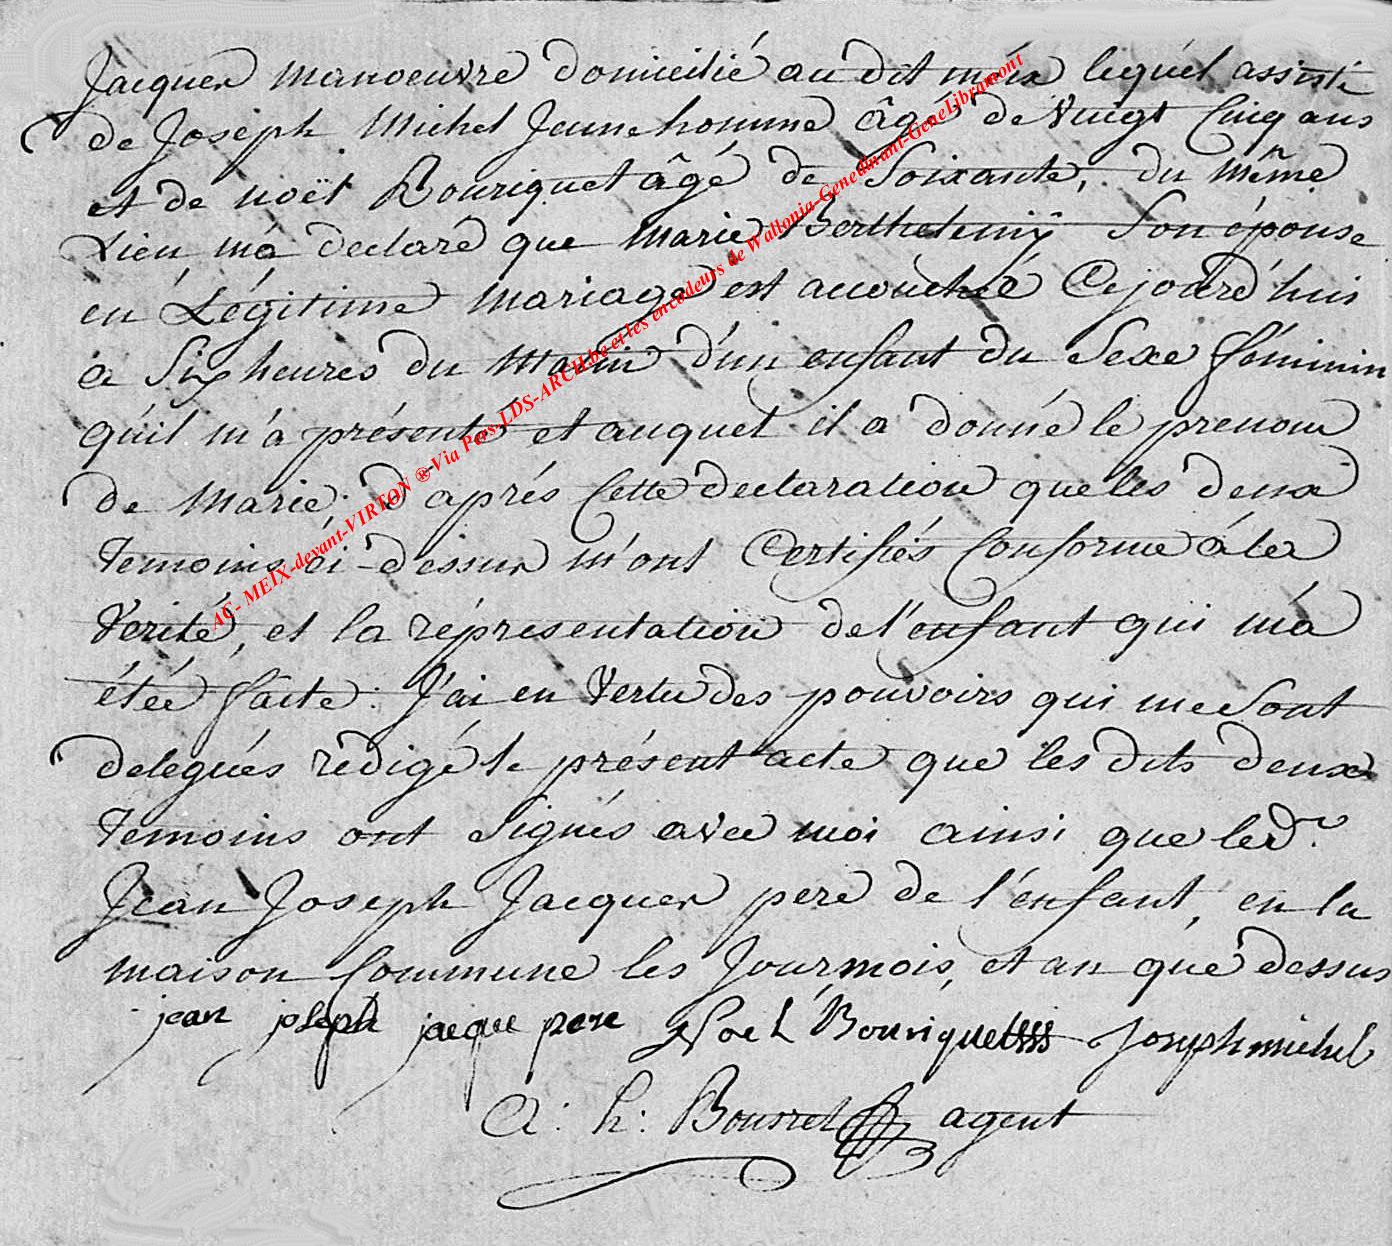 Jacques manoeuvre domicilié au dit méix lequel assisté
de Joseph Michel Jeune homme âgé de Vingt Cinq ans
et de noël Bouriquet âgé de Soixante, du même
Lieu m'a declaré que Marie Berthelemÿ Son épouse
en Légitime Mariage est accouchée Cejourd'huis
à Six heures du Matin d'un enfant du Sexe féminin
qu'il m'a présenté et auquel il a donné le prenom
de Marie, d'après Cette declaration que les deux
Temoins ci-dessus m'ont Certifiés Conforme à la
Verité, et la réprésentation de l'enfant qui m'a
étée faite: J'ai en Vertu des pouvoirs qui me Sont
delegués rédigé le présent acte que les dits deux
Temoins ont Signés avec moi ainsi que led.
Jean Joseph Jacques pere de l'enfant, en la
maison Commune les Jour, mois, et an que dessus
jean joseph jacque pere Noel Bouriquet Joseph michel
A: h: Bourret agent
AC- MEIX-devant-VIRTON ® Via Pers-LDS-ARCH.be et les encodeurs de Wallonia-Genedinant-GeneLibramont